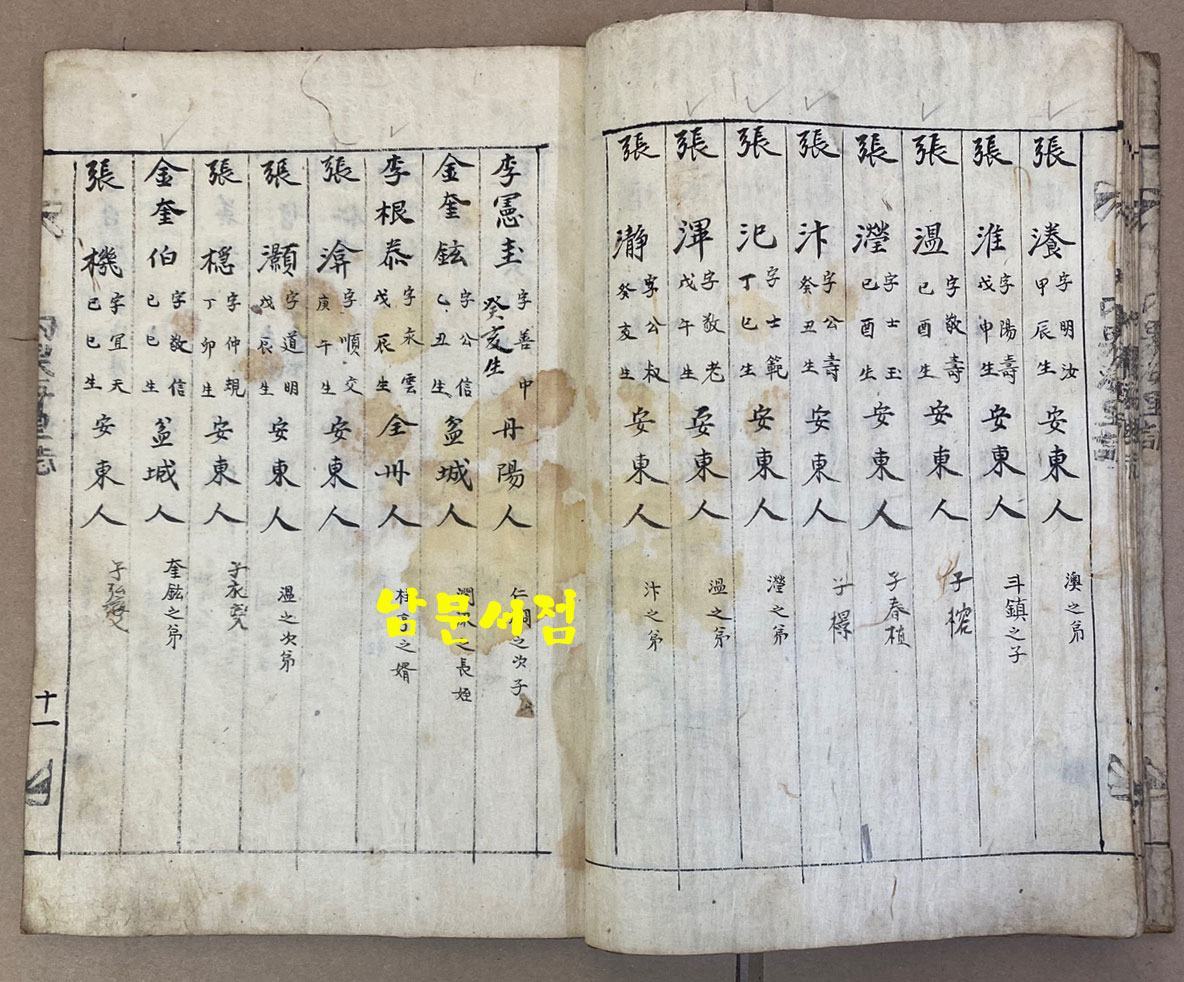 張 瀁 字明汝 甲辰生 安東人 澳之弟
張 淮 字陽壽 戊申生 安東人 斗鎮之子
張 溫 字敬壽 己酉生 安東人 子榕
張 瀅 字士玉 己酉生 安東人 子春植
張 汴 字公壽 癸丑生 安東人 子
張 汜 字士範 丁巳生 安東人 瀅之弟
張 渾 字敬老 戊午生 安東人 溫之弟
張 瀞 字公叔 癸亥生 安東人 汴之弟
李憲圭 字善中 癸亥生 丹陽人 仁 之次子
金奎鉉 字公信 乙丑生 盆城人 潤 之長姪
李根恭 字永雲 戊辰生 全州人 之婿
張 字順交 庚午生 安東人
張 灝 字道明 戊辰生 安東人 溫之次弟
張 穩 字仲 丁卯生 安東人 子永
金奎伯 字敬信 己巳生 盆城人 奎鉉之弟
張 機 字宜天 己巳生 安東人 子
十一
남문서점